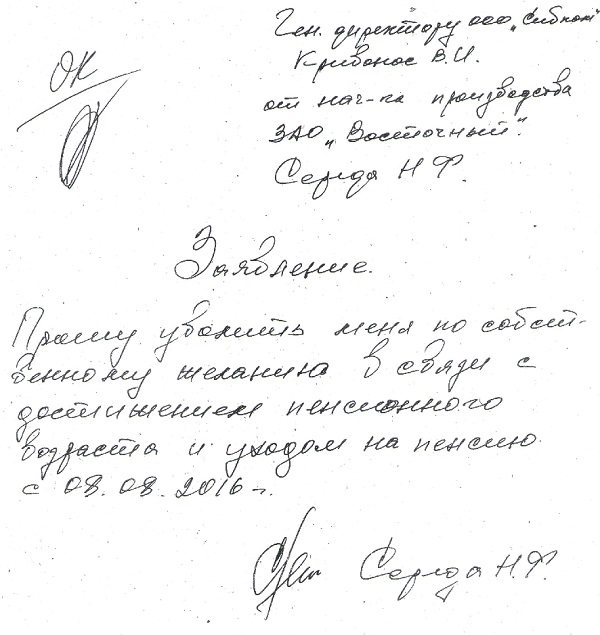 Ген. директору ООО „Сибком"
Кривонос В.И.
от нач-ка производства
ЗАО „Восточный".
Середа Н.Ф.
ОК
Заявление.
Прошу уволить меня по собст-
венному желанию в связи с
достижением пенсионного
возраста и уходом на пенсию
с 08.08.2016 г.
Середа Н.Ф.